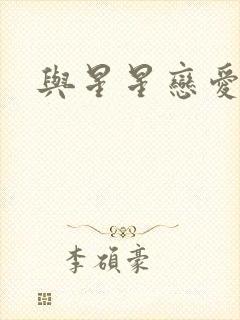 與星星戀愛
李碩豪